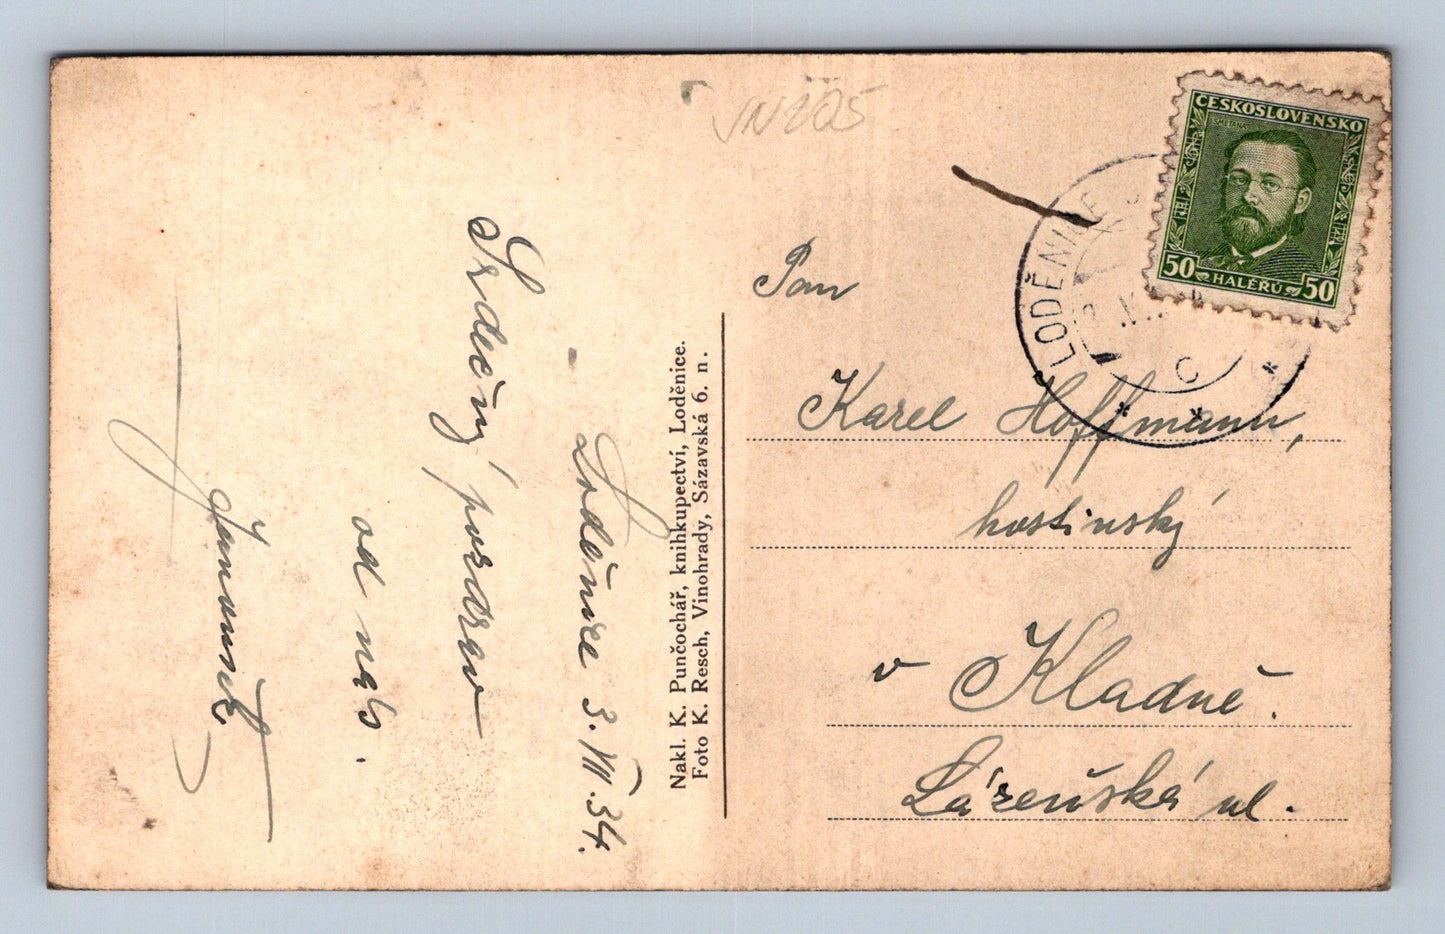 VN225
ČESKOSLOVENSKO
SMETANA
50 HALÉŘŮ 50
LODĚNICE
C
Loděnice 3.VII.34.
Srdečný pozdrav
od nás.
Nakl. K. Punčochář, knihkupectví, Loděnice.
Foto K. Resch, Vinohrady, Sázavská 6. n.
Pan
Karel Hoffmann,
hostinský
v Kladně.
Lázeňská ul.